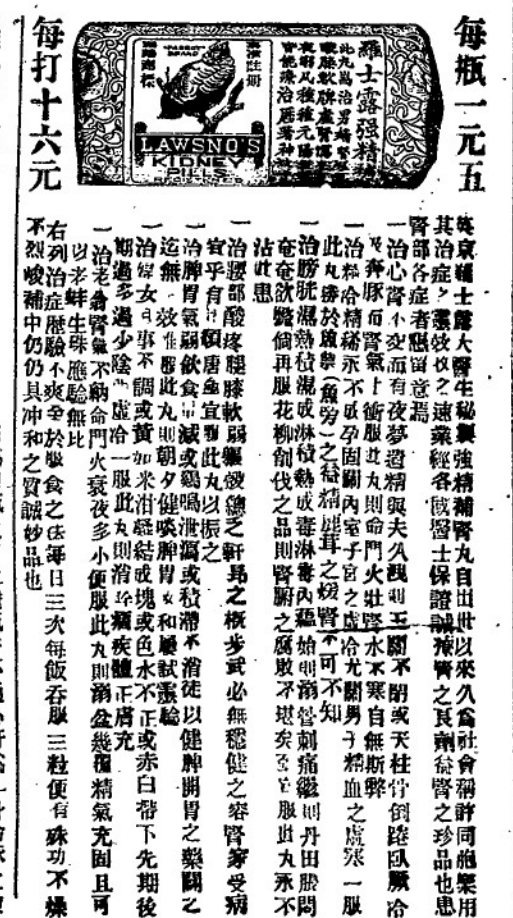 每瓶一元五
羅士露强精
"PARROT"
BRAND
註册
商標
LAWSNO'S
KIDNEY
PILLS
每打十六元
英京羅士露大醫生秘製强精補腎丸自出世以來久爲社會稱許同胞樂用
其治症之靈效收之速業經各國醫士保證誠補腎之良劑益腎之珍品也患
腎部各症者懇留意焉
一治心腎不交而有夜夢遺精與夫久洩則玉關不閉或天柱骨倒踡臥厥冷
及奔豚而腎氣上衝服此丸則命門火壯腎水不寒自無斯弊
一治精冷精稀永不成孕固關內室子宮之虛冷尤關男子精血之虛寒一服
此丸勝於之益精鹿茸之煖腎不可不知
一治膀胱濕熱積濕成淋積熱成毒淋毒內蘊始則溺管刺痛繼則丹田脹悶
奄奄欲斃倘再服花柳削伐之品則腎腑之腐敗不堪矣至宜服此丸永不
沾此患
一治腰部酸疼腿膝軟弱軀殼總之軒昂之概步武必無穩健之容腎家受病
宜乎有此頹唐亟宜服此丸以振之
一治脾胃氣弱飲食日減或鷄鳴泄瀉或積滯不消徒以健脾開胃之藥關之
迄無一效惟服此丸則朝夕健啖脾胃安和屢試靈驗
一治婦女月事不調或黃如米泔凝結成塊或色水不正或赤白帶下先期後
期過多過少陰虛冷一服此丸則消除痼疾體正膚充
一治老翁腎氣不納命門火衰夜多小便服此丸則溺盆幾覆精氣充固且可
以老蚌生珠應驗無比
右列治症歷驗不爽至於服食之法每日三次每飯吞服三粒便有殊功不燥
不烈峻補中仍仍具冲和之質誠妙品也